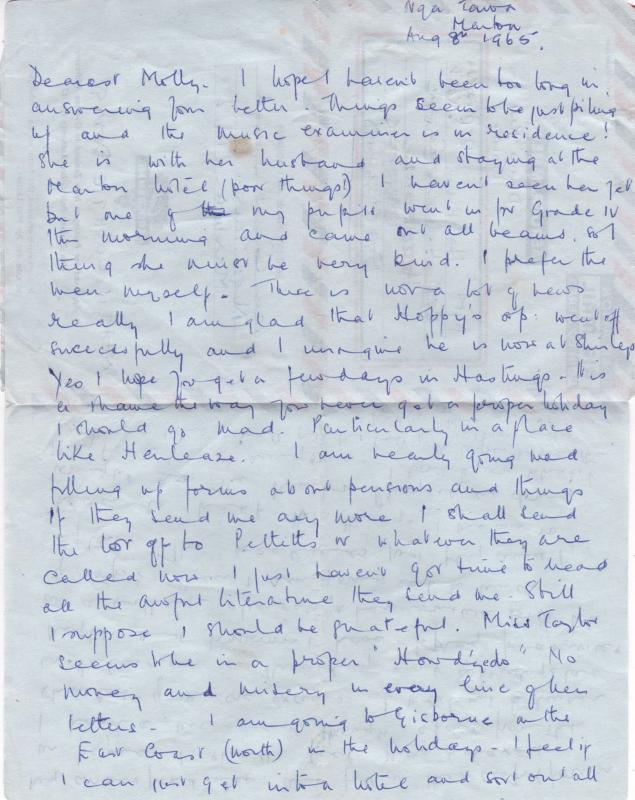 Nga Tawa
Marton
Aug 8th 1965.
Dearest Molly. I hope I haven't been too long in
answering your letter. Things seem to be just piling
up and the music examiner is in residence!
She is with her husband and staying at the
Marton hotel (poor things!) I haven't seen her yet
but one of my pupils went in for Grade IV
this morning and came out all beams, so I
think she must be very kind. I prefer the
men myself. There is not a lot of news
really I am glad that Hoppy's op: went off
successfully and I imagine he is now at
Yes I hope you get a few days in Hastings. It is
a shame the way you never get a proper holiday
I should go mad. Particularly in a place
like Henleaze. I am nearly going mad
filling up forms about pensions and things
If they send me any more I shall send
the lot off to Pettitts or whatever they are
called now. I just haven't got time to read
all the awful literature they send me. Still
I suppose I should be grateful. Miss Taylor
seems to be in a proper "Howdyedo" No
money and misery in every line of her
letters. I am going to Gisborne on the
East Coast (North) in the holidays - I feel if
I can just get into a hotel and sort out all